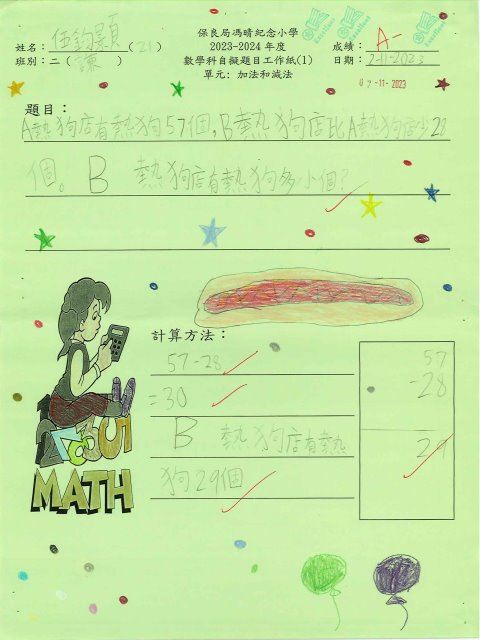 保良局馮晴紀念小學
姓名：伍鈞顥(21)
2023-2024 年度
成績：A-
班別：二（諫）
數學科自擬題目工作紙(1)
日期：2-11-2023
單元：加法和減法
02-11-2023
題目：
A熱狗店有熱狗57個，B熱狗店比A熱狗店少28
個。B 熱狗店有熱狗多小個？
計算方法：
57-28
=30
B 熱狗店有熱
狗29個
57
-28
29
MATH